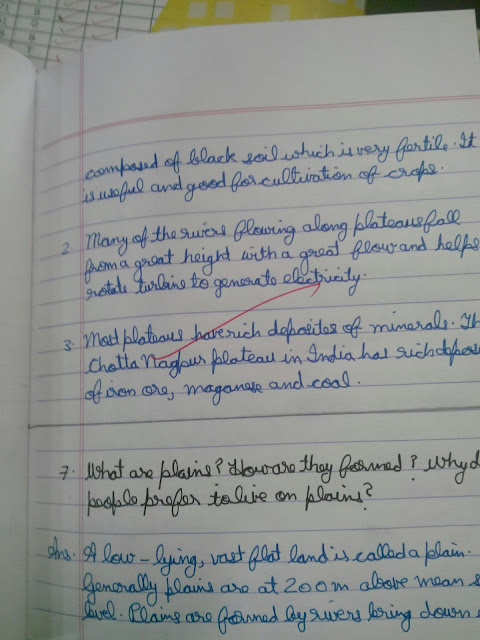 composed of black soil which is very fertile. It
is useful and good for cultivation of crops.
2. Many of the rivers flowing along plateaus fall
from a great height with a great flow and helps
rotate turbine to generate electricity.
3. Most plateaus have rich deposites of minerals. Th
Chotta Nagpur plateau in India has rich depos
of iron ore, maganese and coal.
7. What are plains? How are they formed? Why d
people prefer to live on plains?
Ans. A low-lying, vast flat land is called a plain.
Generally plains are at 200m above mean s
level. Plains are formed by rivers bring down